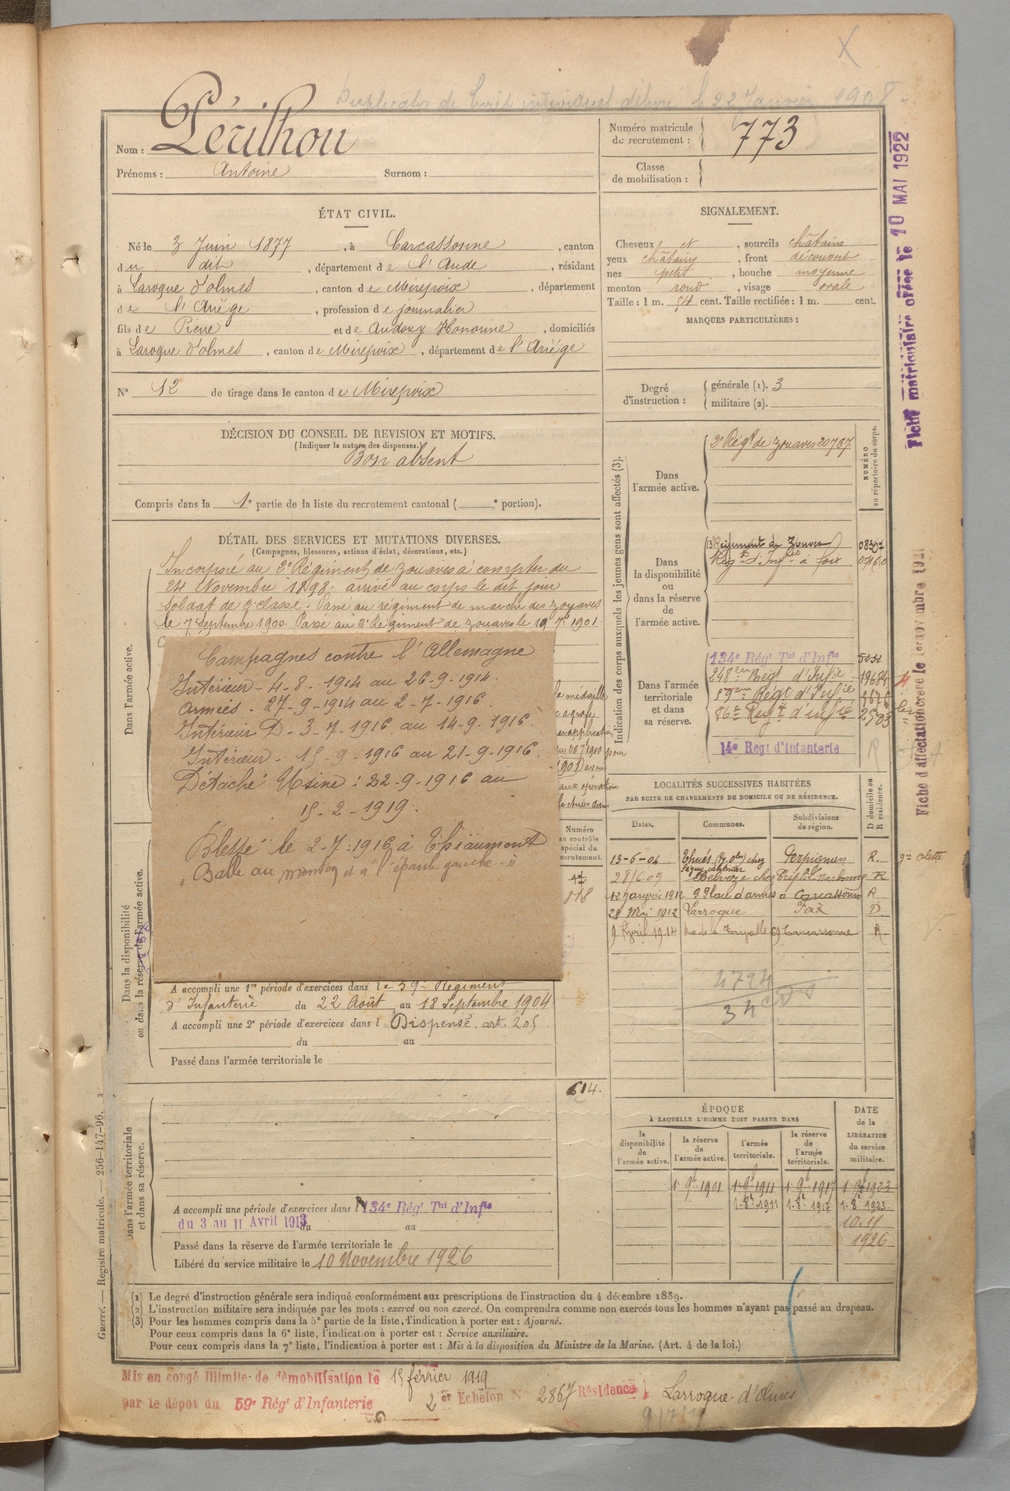 Duplicata de livret individuel délivré le 22 Janvier 1908
Nom : Périlhou
Prénoms : Antoine Surnom :
Numéro matricule du recrutement : 773
Classe de mobilisation :
ÉTAT CIVIL.
Né le 3 Juin 1877, à Carcassonne, canton
du dit, département de l'Aude, résidant
à Laroque d'olmes, canton de Mirepoix, département
de l'Ariège, profession de journalier
fils de Pierre et de Andouy Honorine, domiciliés
à Laroque d'olmes, canton de Mirepoix, département de l'Ariège
N° 12 de tirage dans le canton de Mirepoix
DÉCISION DU CONSEIL DE REVISION ET MOTIFS.
(Indiquer la nature des dispenses.)
Bon absent
Compris dans la 1e partie de la liste du recrutement cantonal ( e portion).
SIGNALEMENT.
Cheveux et, sourcils châtains
yeux châtains, front découvert
nez petit, bouche moyenne
menton rond, visage ovale
Taille : 1 m. 54 cent. Taille rectifiée : 1 m. cent.
MARQUES PARTICULIÈRES :
Degré d'instruction : générale (1). 3
militaire (2).
DÉTAIL DES SERVICES ET MUTATIONS DIVERSES.
(Campagnes, blessures, actions d'éclat, décorations, etc.)
Dans l'armée active.
Incorporé au 2e Régiment de zouaves à compter du
24 Novembre 1898, arrivé au corps le dit jour
soldat de 2e classe. Passé au régiment de marche des zouaves
le 7 septembre 1900. Passé au 2e Régiment de zouaves le 19 7 1901.
Campagnes contre l'Allemagne
Intérieur - 4-8-1914 au 26-9-1914.
Armées - 27-9-1914 au 2-7-1916.
Intérieur D - 3-7-1916 au 14-9-1916.
Intérieur - 15-9-1916 au 21-9-1916.
Détaché Usine : 22-9-1916 au
15-2-1919.
Blessé le 2-7-1916, à Thiaumont
"Balle au menton et à l'épaule gauche."
la médaille
Numéro au contrôle spécial du recrutement.
Dans la disponibilité ou dans la réserve de l'armée active.
A accompli une 1re période d'exercices dans le 59e Régiment
d'Infanterie du 22 Août au 18 Septembre 1904
A accompli une 2e période d'exercices dans l Dispensé art. 205
du au
Passé dans l'armée territoriale le
614.
Dans l'armée territoriale et dans sa réserve.
A accompli une période d'exercices dans l 134e Régt Tal d'Infie
du 3 au 11 Avril 1913 au
Passé dans la réserve de l'armée territoriale le
Libéré du service militaire le 10 Novembre 1926
Indication des corps auxquels les jeunes gens sont affectés (3).
NUMÉRO au répertoire du corps.
Dans l'armée active.
2e Régt de zouaves 20797
Dans la disponibilité ou dans la réserve de l'armée active.
Régiment de Zouaves
Régt d'Infie à Foix
Dans l'armée territoriale et dans sa réserve.
134e Régt Tal d'Infie
248e Régt d'Infie 19684
Régt d'Infie
86e Regt d'infie 2503
14e Régt d'Infanterie
LOCALITÉS SUCCESSIVES HABITÉES
PAR SUITE DE CHANGEMENTS DE DOMICILE OU DE RÉSIDENCE.
Dates. Communes. Subdivisions de région. D domicile ou R résidence.
13-6-04 Perpignan R.
28/6 09 Narbonne R
12 janvier 1912 9 Place d'armes à Carcassonne R
28 Mai 1912 Larroque Foix D
9 Avril 1914 Carcassonne R
4794
34
ÉPOQUE
À LAQUELLE L'HOMME DOIT PASSER DANS
la disponibilité de l'armée active. la réserve de l'armée active. l'armée territoriale. la réserve de l'armée territoriale. DATE de la LIBÉRATION du service militaire.
1 9b 1901 1 9b 1911 1 9b 1917 1 9b 1923
1-8b 1911 1-8b 1917 1-8b 1923
10.11
1926
(1) Le degré d'instruction générale sera indiqué conformément aux prescriptions de l'instruction du 4 décembre 1889.
(2) L'instruction militaire sera indiquée par les mots : exercé ou non exercé. On comprendra comme non exercés tous les hommes n'ayant pas passé au drapeau.
(3) Pour les hommes compris dans la 5e partie de la liste, l'indication à porter est : Ajourné.
Pour ceux compris dans la 6e liste, l'indication à porter est : Service auxiliaire.
Pour ceux compris dans la 7e liste, l'indication à porter est : Mis à la disposition du Ministre de la Marine. (Art. 4 de la loi.)
Mis en congé illimité de démobilisation le 15 février 1919
par le dépôt du 59e Régt d'Infanterie 2 er Echelon N° 2867 Résidence Larroque d'Olmes
Guerre. — Registre matricule. — 256-147-96.
Fiche matriculaire créée le 10 MAI 1922
Fiche d'affectation créée le